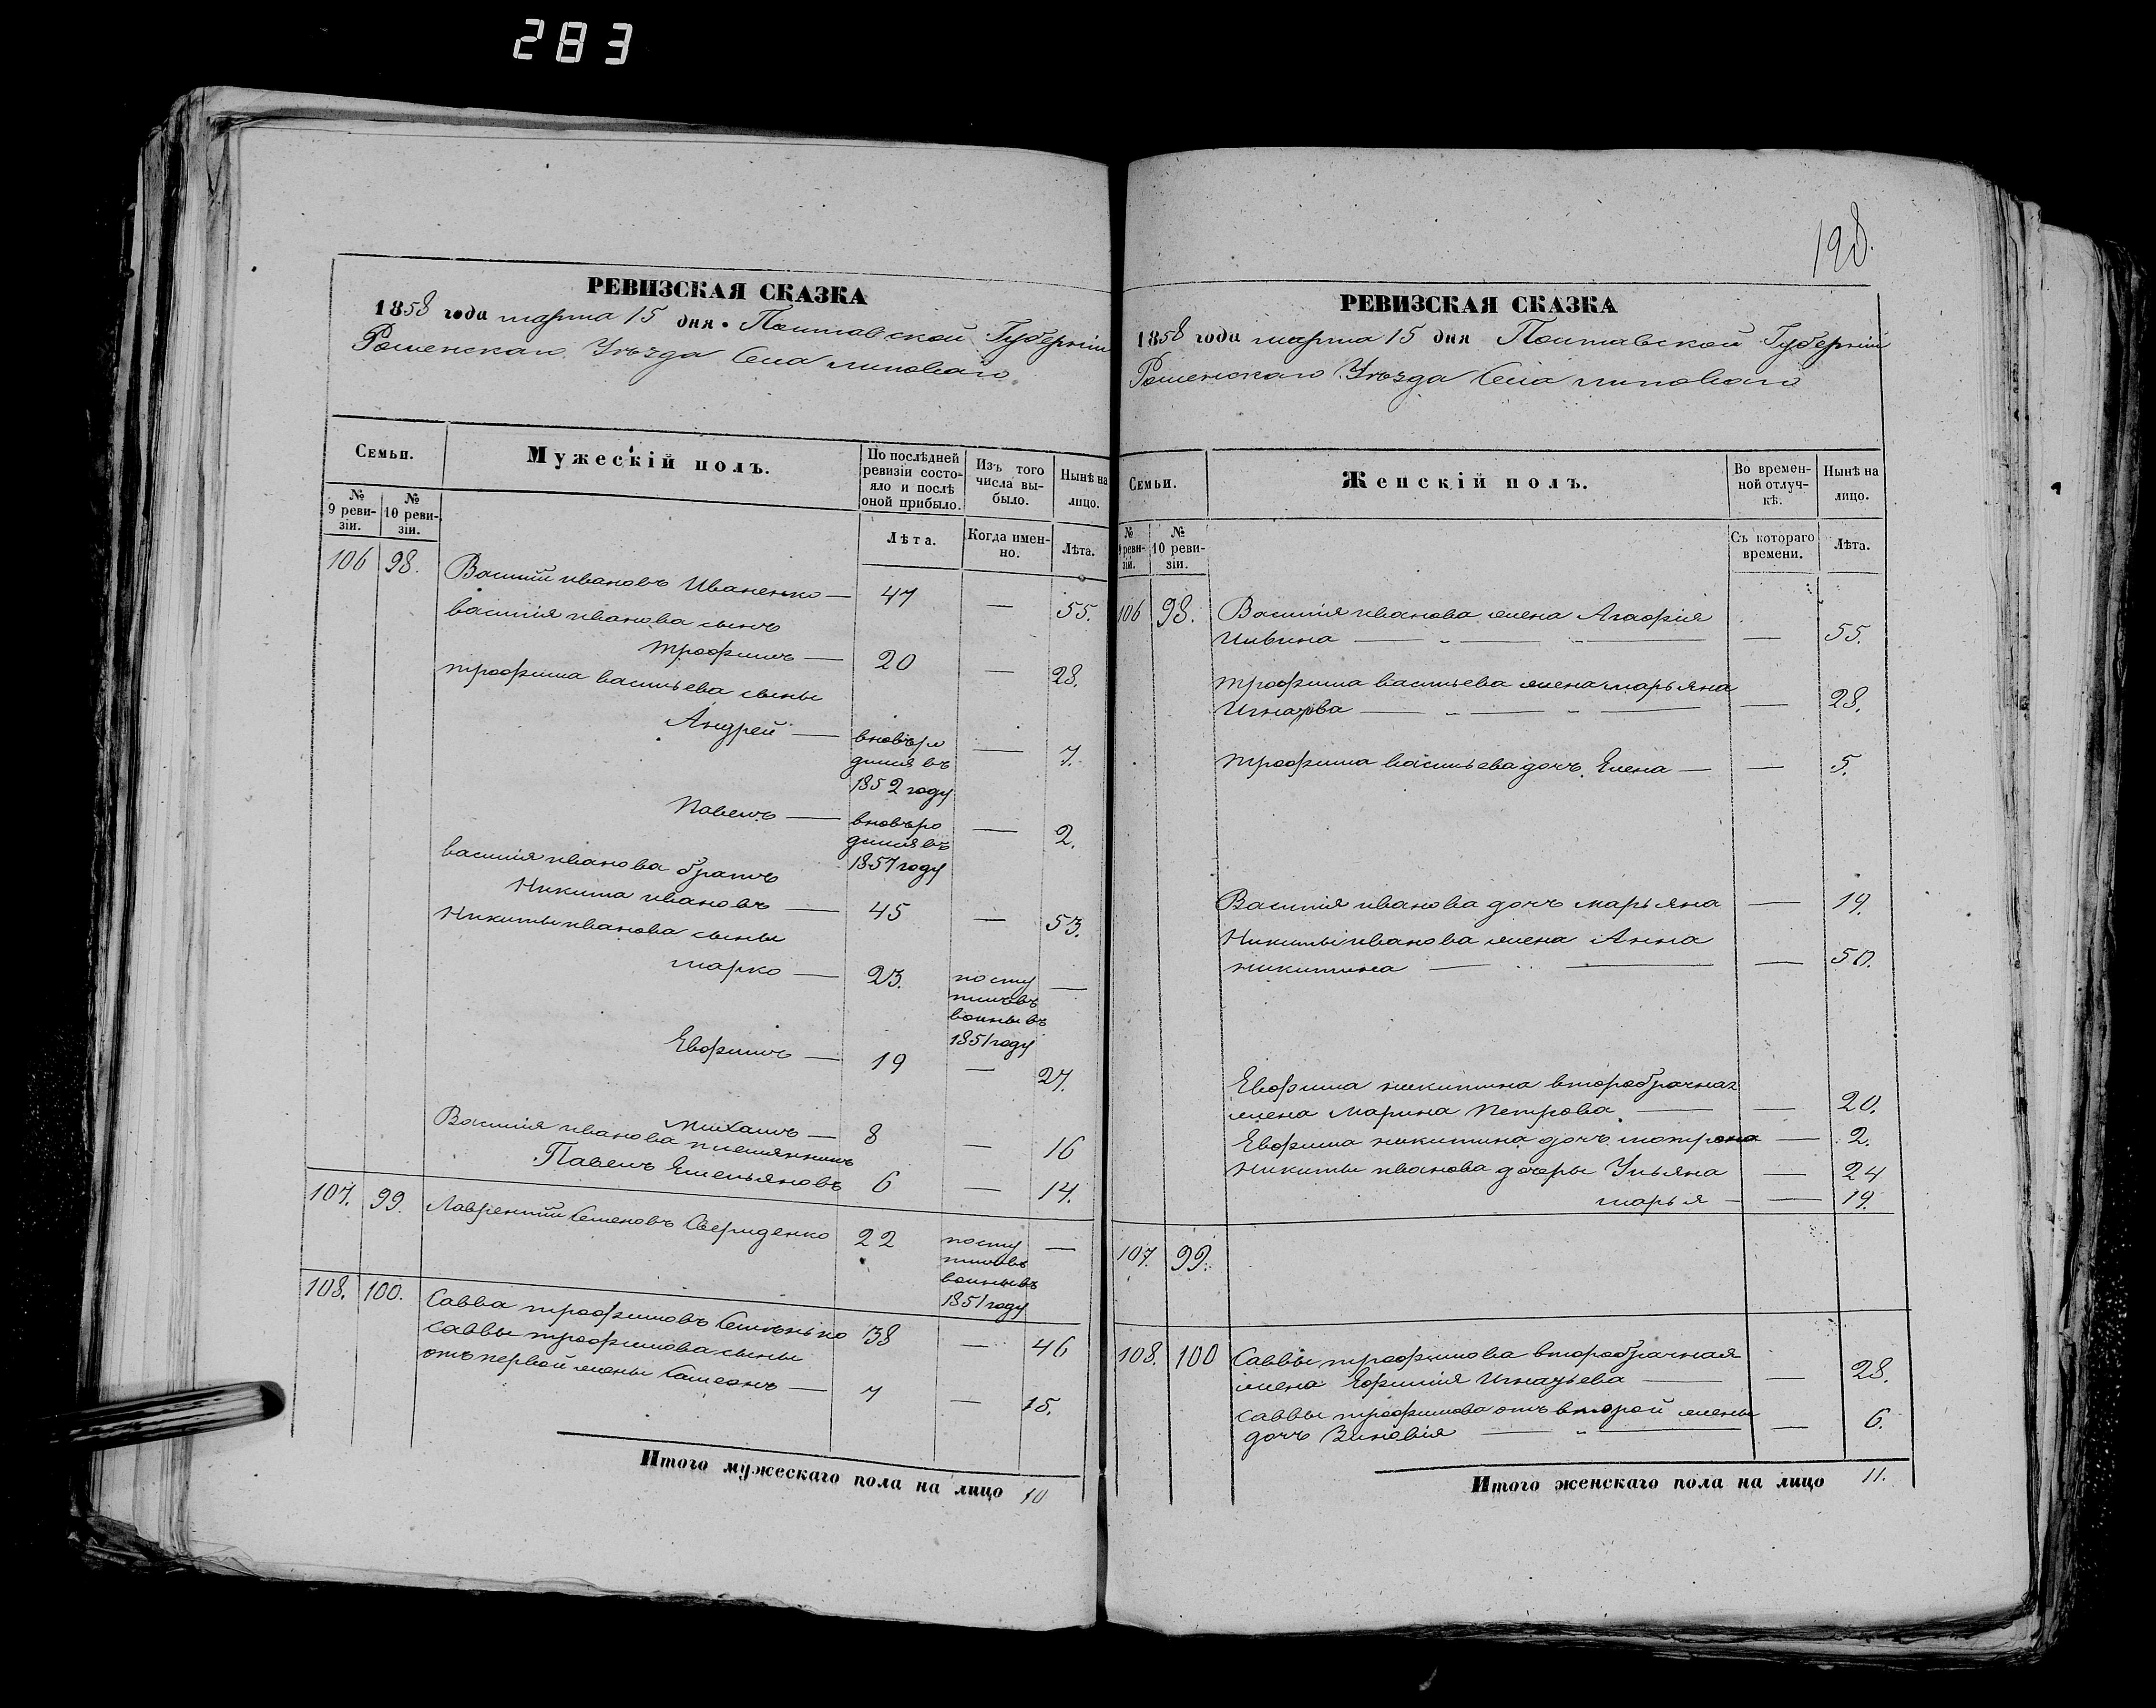 283
РЕВИЗСКАЯ СКАЗКА
1858 года марта 15 дня. Полтавской Губерніи
Роменскаго Уѣзда Села Липоваго
Семьи.
Мужескій полъ.
По послѣдней ревизіи состояло и послѣ оной прибыло.
Изъ того числа выбыло.
Нынѣ на лицо.
№ 9 ревизіи.
№ 10 ревизіи.
Лѣта.
Когда именно.
Лѣта.
106 98. Василій Ивановъ Иваненко — 47 — 55.
Василія Иванова сынъ
Трофимъ — 20 — 28.
Трофима Васильева сыны
Андрей — вновь ро
дился въ
1852 году — 7.
Павелъ — вновь ро
дился въ
1857 году — 2.
Василія Иванова братъ
Никита Ивановъ — 45 — 53.
Никиты Иванова сыны
Марко — 23. посту
пилъ въ
воины въ
1851 году —
Евфимъ — 19 — 27.
Михаилъ — 8 — 16
Василія Иванова племянникъ
Павелъ Емельяновъ 6 — 14.
107. 99. Лаврентій Семеновъ Свериденко 22 посту
пилъ въ
воины въ
1851 году —
108. 100. Савва Трофимовъ Семенько 38 — 46
Саввы Трофимова сыны
отъ первой жены Самсонъ — 7 — 15.
Итого мужескаго пола на лицо 10
198.
РЕВИЗСКАЯ СКАЗКА
1858 года марта 15 дня Полтавской Губерніи
Роменскаго Уѣзда Села Липоваго
Семьи.
Женскій полъ.
Во временной отлучкѣ.
Нынѣ на лицо.
№ 9 ревизіи.
№ 10 ревизіи.
Съ котораго времени.
Лѣта.
106 98. Василія Иванова жена Агафія
Ильина — „ — — 55.
Трофима Васильева жена Марьяна
Игнатова — „ — „ — — 28.
Трофима Васильева дочь Елена — — 5.
Василія Иванова дочь Марьяна — 19.
Никиты Иванова жена Анна
Никитина — — — 50.
Евфима Никитина второбрачная
жена Марина Петрова — — 20.
Евфима Никитина дочь Мотрона — 2.
Никиты Иванова дочери Ульяна — 24
Марья — — 19.
107. 99.
108. 100 Саввы Трофимова второбрачная
жена Ефимія Игнатьева — — 28.
Саввы Трофимова отъ второй жены
дочь Зиновія — „ — — 6.
Итого женскаго пола на лицо 11.